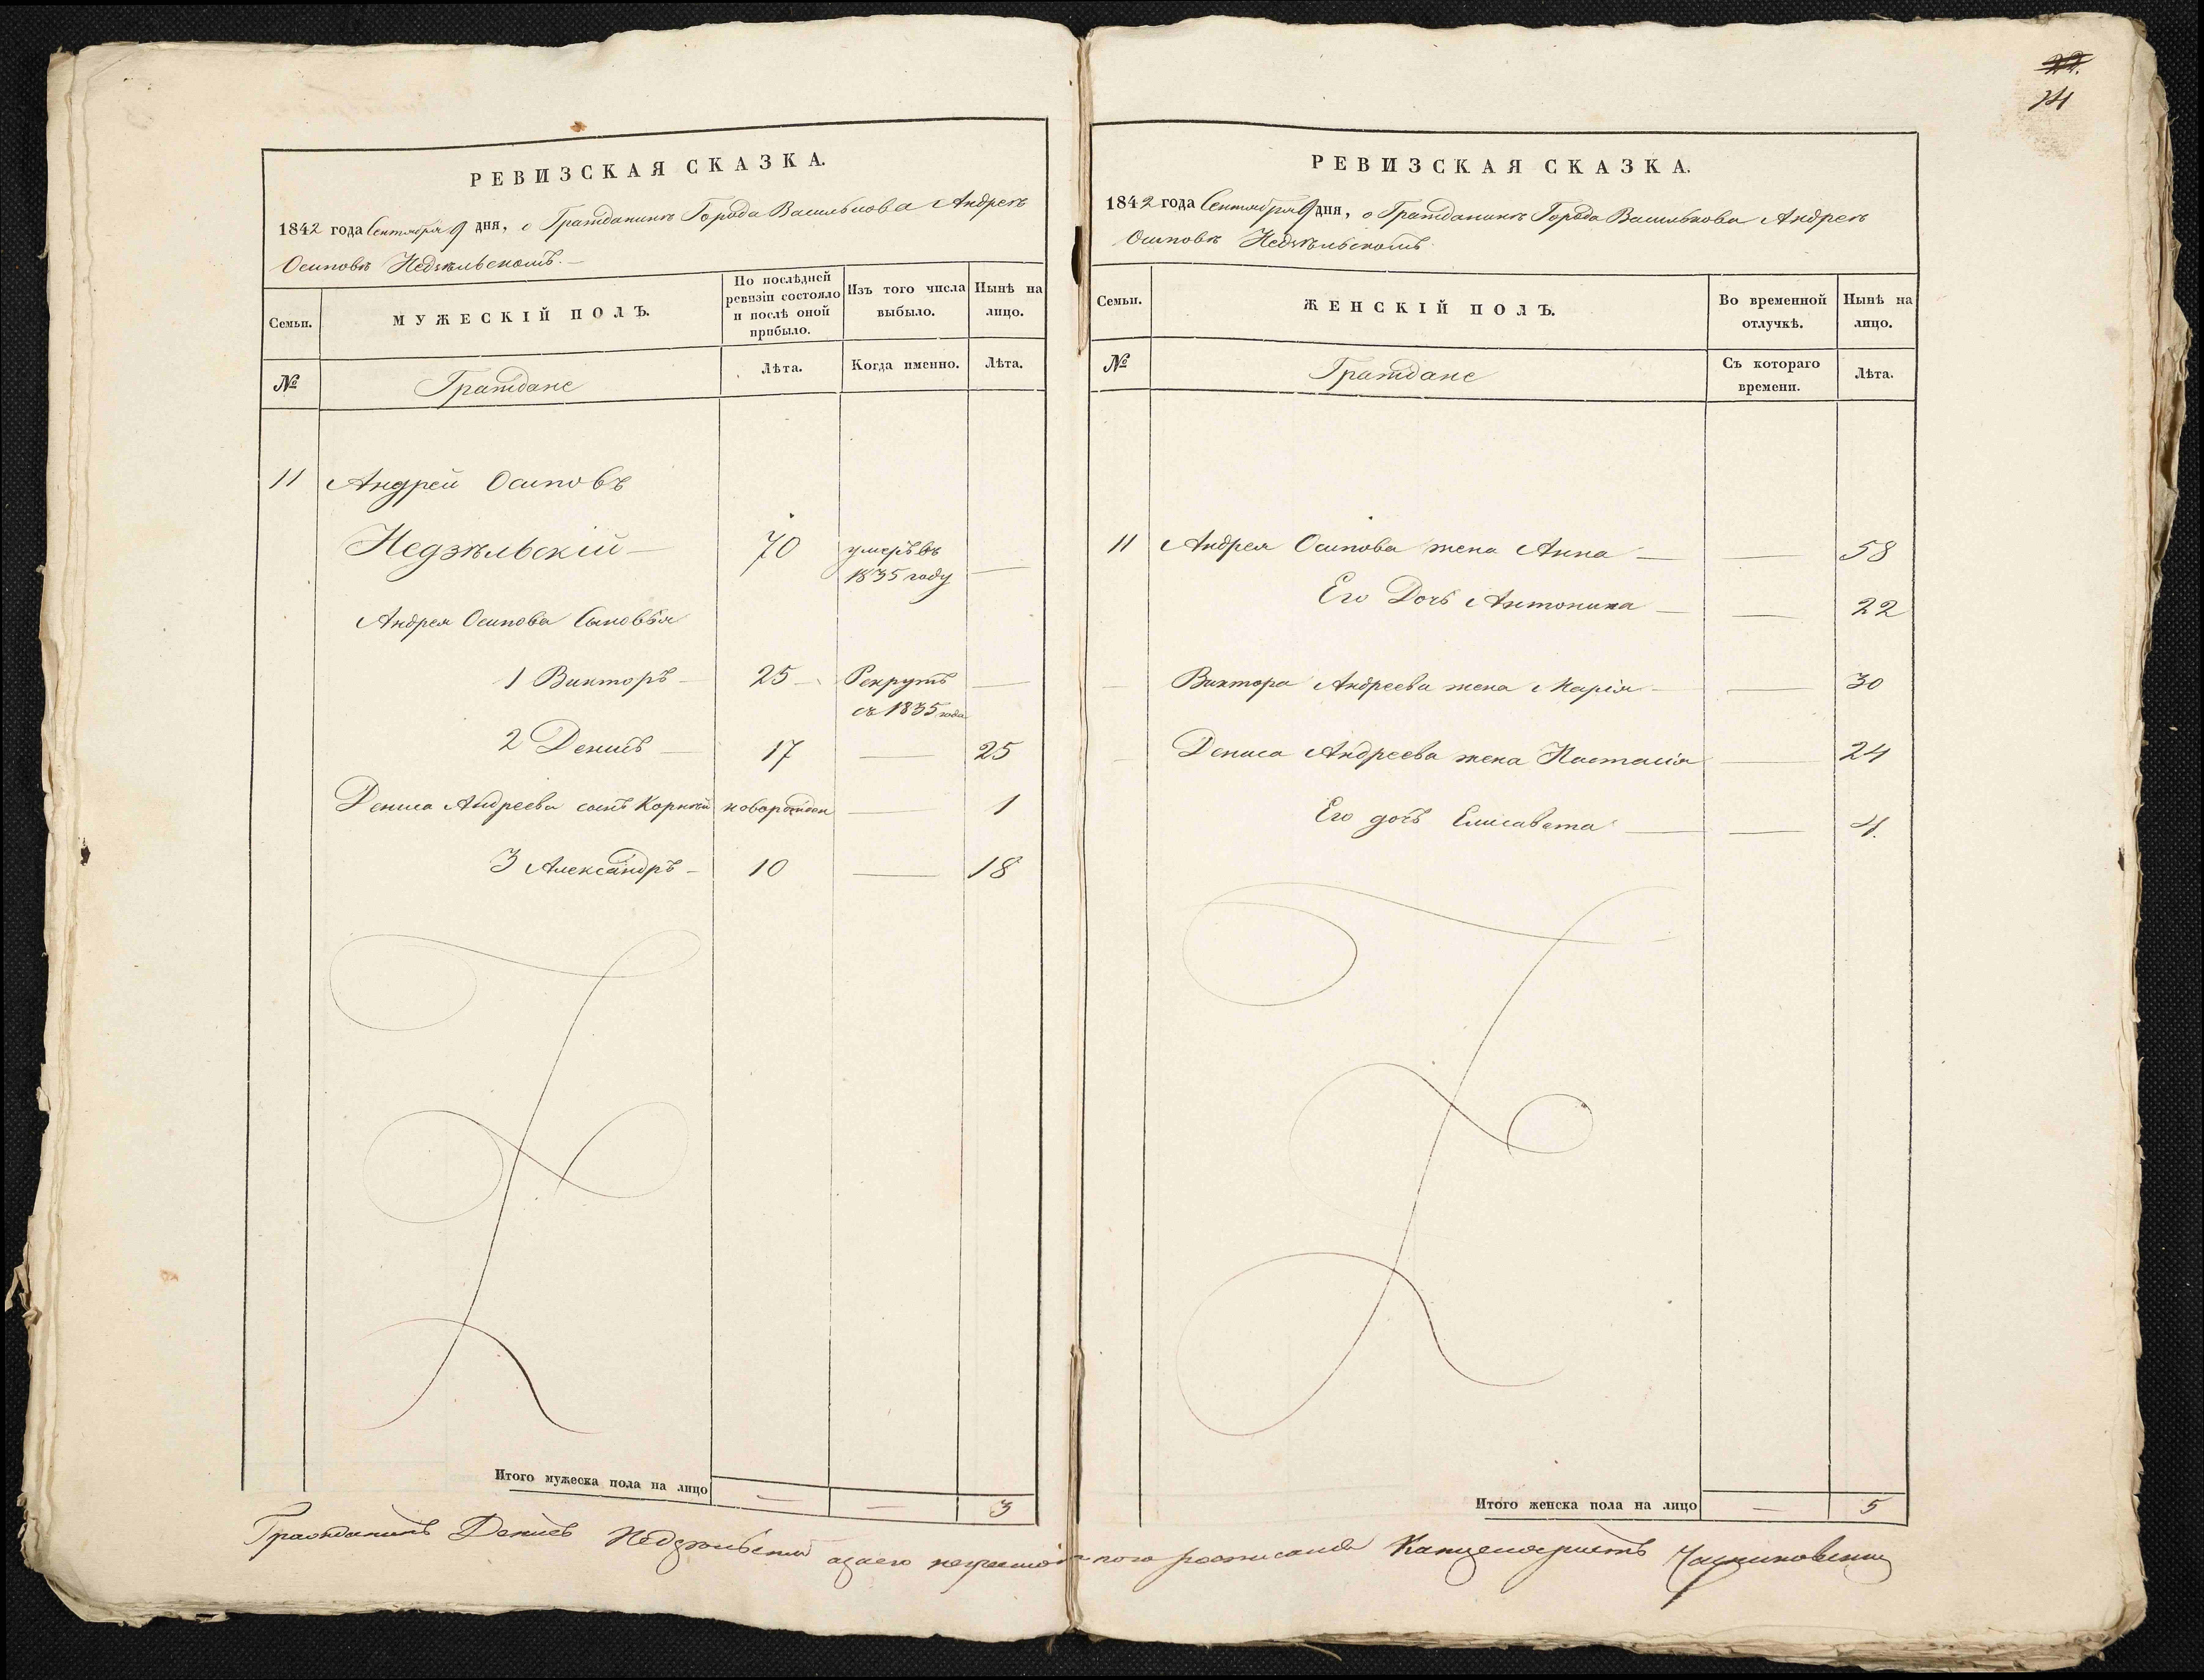 22.
14
РЕВИЗСКАЯ СКАЗКА.
1842 года Сентября 9 дня, о Гражданинѣ Города Василькова Андреѣ
Осиповѣ Недзѣльскомъ.—
Семьи.
МУЖЕСКІЙ ПОЛЪ.
По послѣдней ревизіи состояло и послѣ оной прибыло.
Изъ того числа выбыло.
Нынѣ на лицо.
№
Граждане
Лѣта.
Когда именно.
Лѣта.
11 Андрей Осиповъ
Недзѣльскій — 70 умеръ въ —
1835 году
Андрея Осипова Сыновья
1 Викторъ — 25 — Рекрутъ —
съ 1835 года
2 Денисъ — 17 — 25
Дениса Андреева сынъ Корнѣй новорожден — 1
3 Александръ — 10 — 18
Итого мужеска пола на лицо — — 3
РЕВИЗСКАЯ СКАЗКА.
1842 года Сентября 9 дня, о Гражданинѣ Города Василькова Андреѣ
Осиповѣ Недзѣльскомъ.
Семьи.
ЖЕНСКІЙ ПОЛЪ.
Во временной отлучкѣ.
Нынѣ на лицо.
№
Граждане
Съ котораго времени.
Лѣта.
11 Андрея Осипова жена Анна — — 58
Его Дочь Антонина — — 22
Виктора Андреева жена Марія — — 30
Дениса Андреева жена Настасія — 24
Его дочь Елисавета — — 4.
Итого женска пола на лицо — 5
Гражданинъ Денисъ Недзѣльскій а за его неграмотного росписался Канцеляристъ